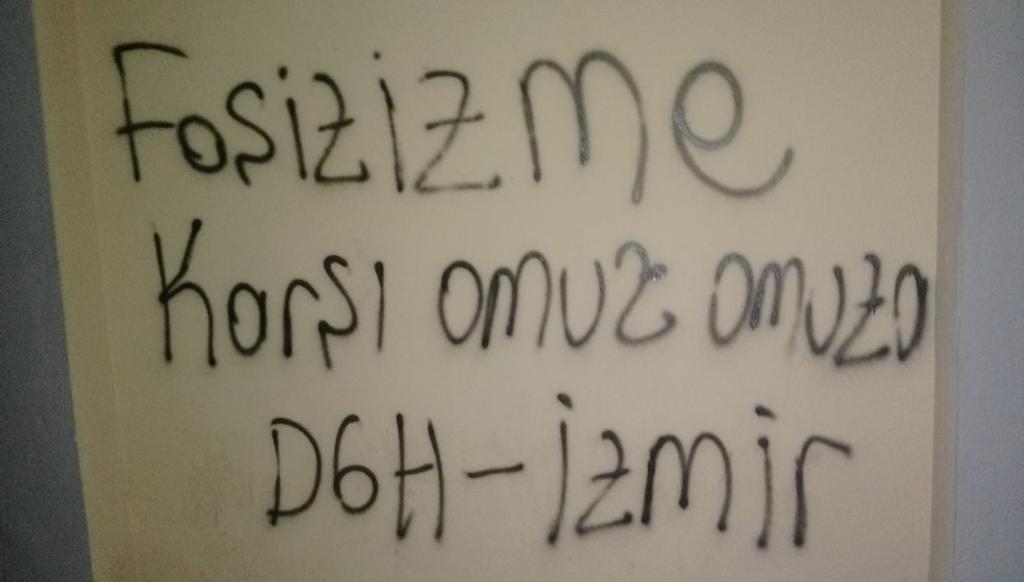 Faşizizme
Karşı omuz omuza
DGH-İzmir